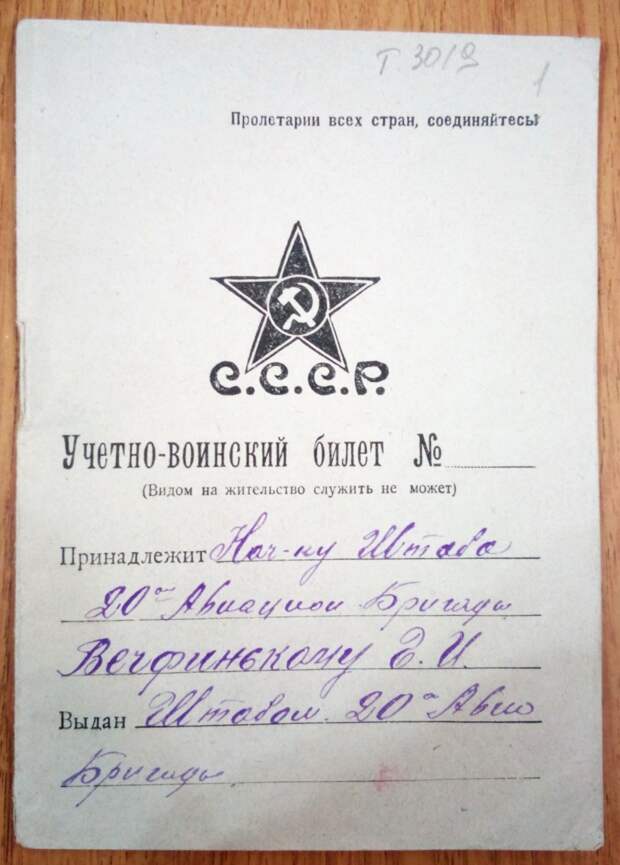 Т. 3019
1
Пролетарии всех стран, соединяйтесь!
С.С.С.Р.
Учетно-воинский билет №
(Видом на жительство служить не может)
Принадлежит Нач-ку Штаба
20ой Авиацион Бригады
Э. И.
Выдан Штабом 20ой Авио
Бригады